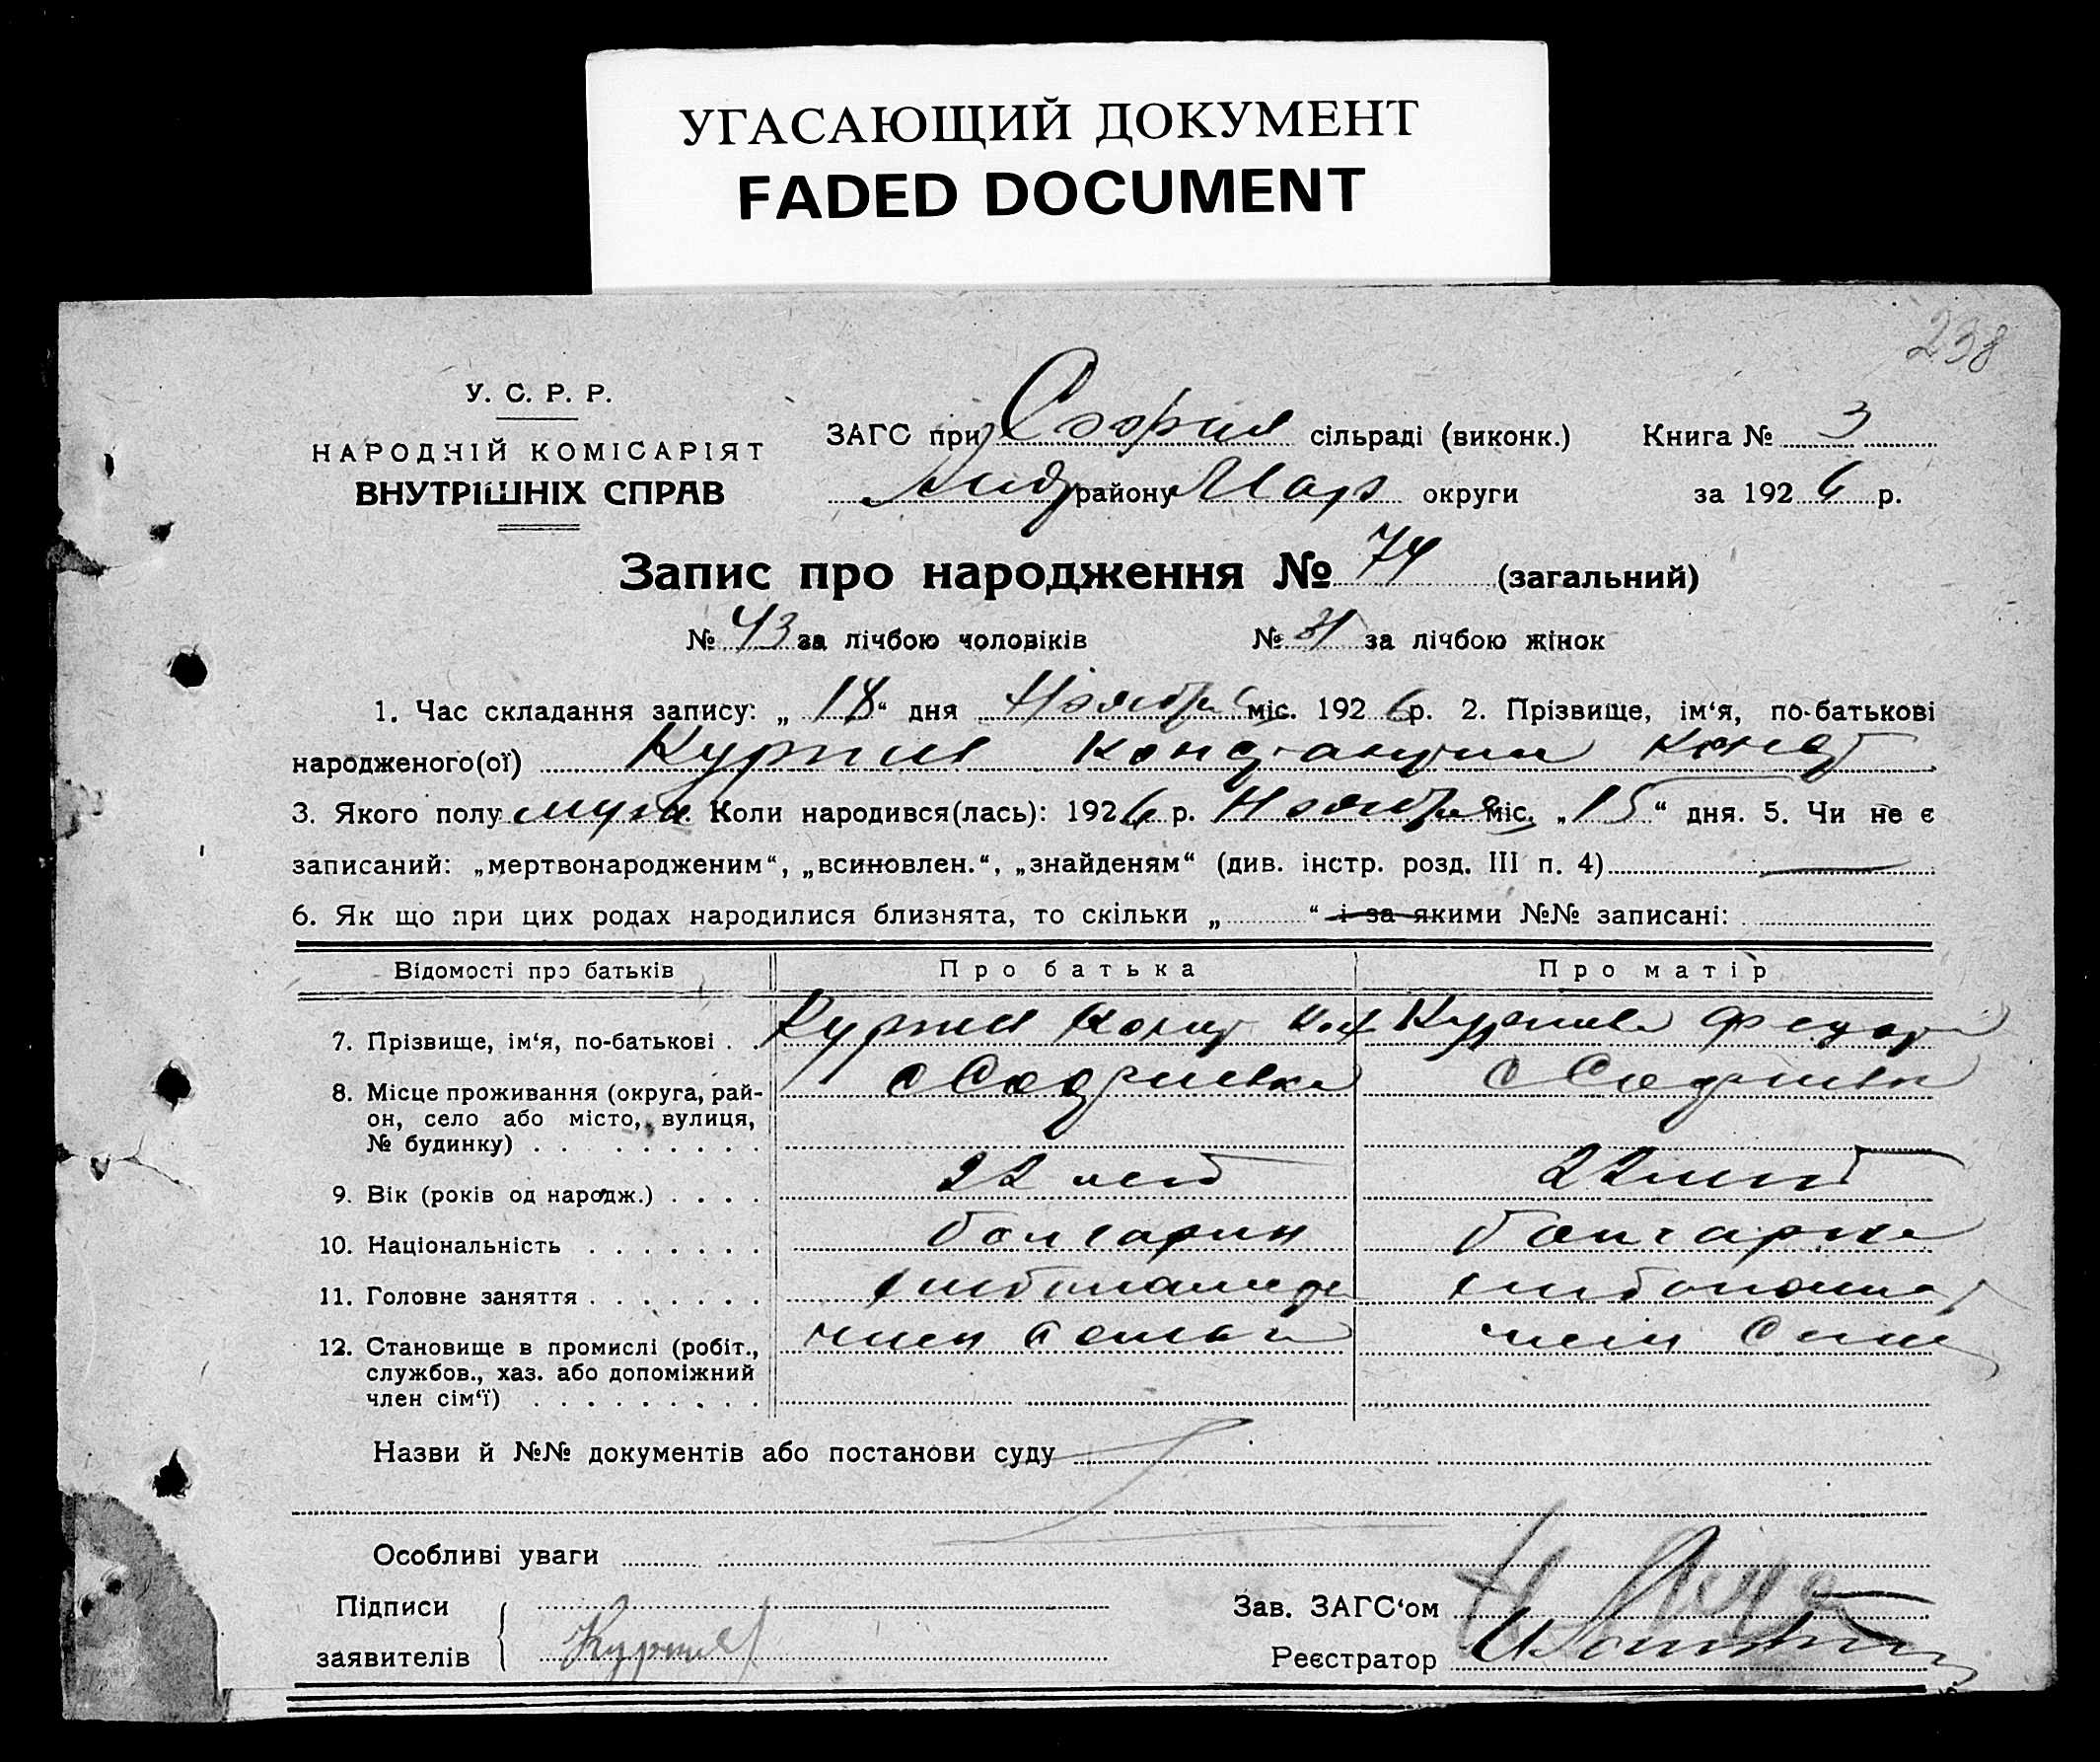 УГАСАЮЩИЙ ДОКУМЕНТ
FADED DOCUMENT
238
У. С. Р. Р.
НАРОДНІЙ КОМІСАРІЯТ
ВНУТРІШНІХ СПРАВ
ЗАГС при София сільраді (виконк.) Книга № 3
району Мар округи за 1926 р.
Запис про народження № 74 (загальний)
№ 43 за лічбою чоловіків № 31 за лічбою жінок
1. Час складання запису: „18“ дня Ноября міс. 1926 р. 2. Прізвище, ім‘я, по-батькові
народженого(ої) Курти Константин Конст
3. Якого полу муж. Коли народився(лась): 1926 р. Ноября міс. „15“ дня. 5. Чи не є
записаний: „мертвонародженим“, „всиновлен.“, „знайденям“ (див. інстр. розд. III п. 4)
6. Як що при цих родах народилися близнята, то скільки „ “ і за якими №№ записані:
Відомості про батьків Про батька Про матір
7. Прізвище, ім‘я, по-батькові
8. Місце проживання (округа, рай-
он, село або місто, вулиця,
№ будинку)
9. Вік (років од народж.) 22 лет 22 лет
10. Національність болгарин болгарка
11. Головне заняття
12. Становище в промислі (робіт., член семьи член семи
службов., хаз. або допоміжний
член сім‘ї)
Назви й №№ документів або постанови суду
Особливі уваги
Підписи
заявителів
Зав. ЗАГС‘ом
Реєстратор